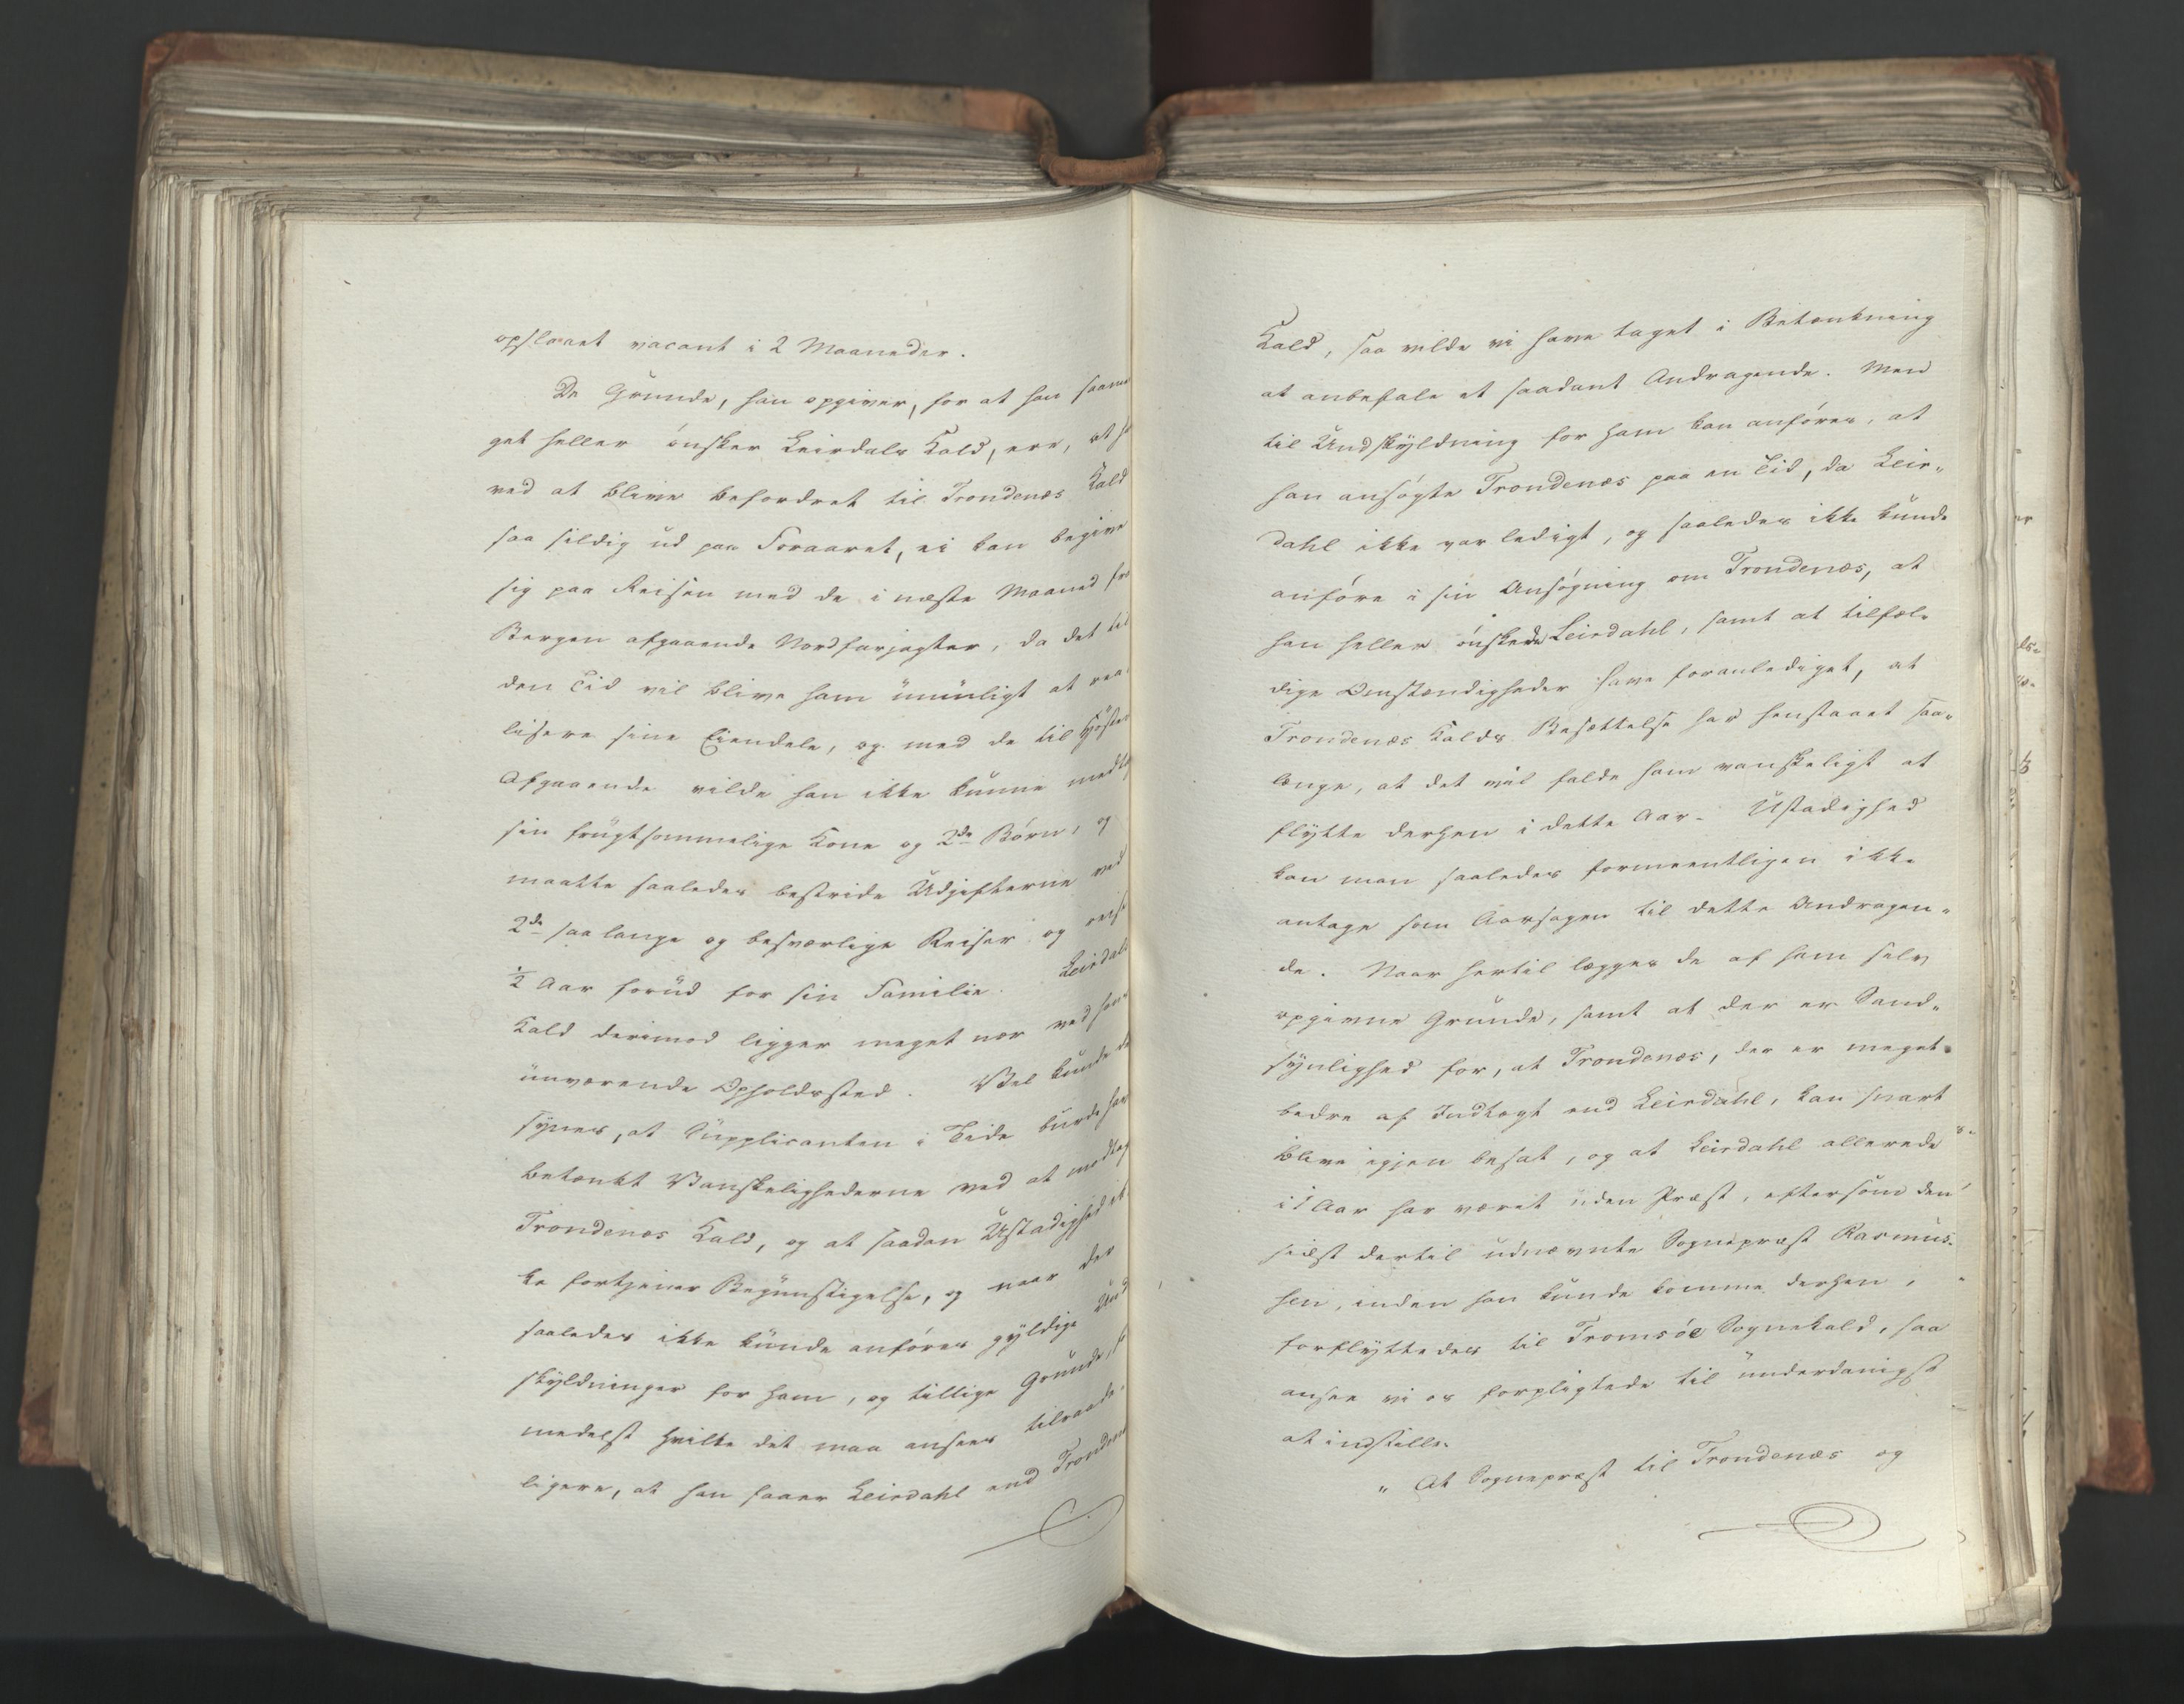 opslaaet vacant i 2 Maaneder.
De Grunde, han opgiver, for at han saame
get heller ønsker Leirdals Kald, ere, at ha
ved at blive befordret til Trondenæs Kald
saa sildig ud paa Foraaret, ei kan begive
sig paa Reisen med de i næste Maaned fra
Bergen afgaaende Nordfarjagter, da det til
den Tid vil blive ham umuligt at rea-
lisere sine Eiendele, og med de til Høsten
Afgaaende vilde han ikke kunne medta
sin frugtsommelige Kone og 2de Børn, og
maatte saaledes bestride Udgifterne ved
2de saa lange og besværlige Reiser og reise
½ Aar forud for sin Familie. Leirdals
Kald derimod ligger meget nær ved hans
nuværende Opholdssted. Vel kunde de
synes, at Supplicanten i Tide burde hav
betænkt Vanskelighederne ved at modtag
Trondenæs Kald, og at saadan Ustadighed ik
ke fortjener Begunstigelse, og naar der
saaledes ikke kunde anføres gyldige Und
skyldninger for ham, og tillige Grunde, for
medelst hvilke det maa ansees tilraade-
ligere, at han faaer Leirdahl end Trondenæs
Kald, saa vilde vi have taget i Betænkning
at anbefale et saadant Andragende. Men
til Undskyldning for ham kan anføres, at
han ansøgte Trondenæs paa en Tid, da Leir-
dahl ikke var ledigt, og saaledes ikke kunde
anføre i sin Ansøgning om Trondenæs, at
han heller ønskede Leirdahl, samt at tilfæl-
dige Omstændigheder have foranlediget, at
Trondenæs Kalds Besættelse har henstaaet saa-
længe, at det vil falde ham vanskeligt at
flytte derhen i dette Aar. Ustadighed
kan man saaledes formeentligen ikke
antage som Aarsagen til dette Andragen-
de. Naar hertil lægges de af ham selv
opgivne Grunde, samt at der er Sand-
synlighed for, at Trondenæs, der er meget
bedre af Indtægt end Leirdahl, kan snart
blive igjen besat, og at Leirdahl allerede
i 1 Aar har været uden Præst, eftersom den
sidst dertil udnævnte Sognepræst Rasmus-
sen, inden han kunde komme derhen,
forflyttedes til Tromsöe Sognekald, saa
ansee vi os forpligtede til underdanigst
at indstille.
" At Sognepræst til Trondenæs og